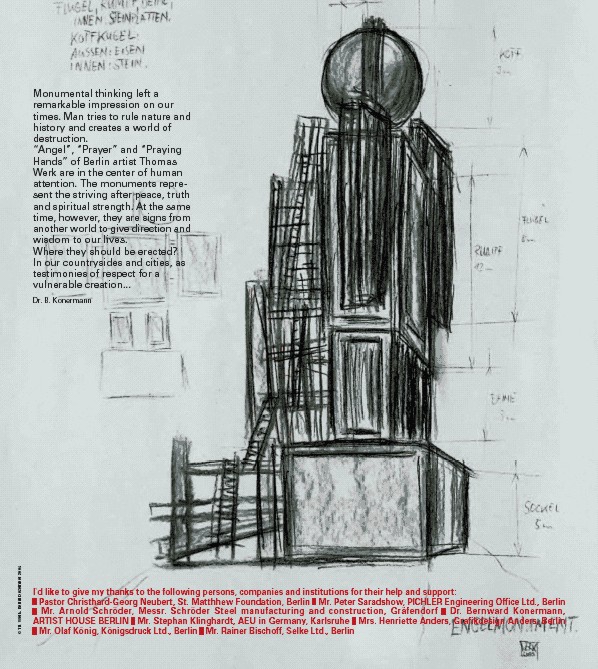 FLÜGEL, RUMPF, BEINE,
INNEN: STEINPLATTEN.
KOPFKUGEL:
AUSSEN: EISEN
INNEN: STEIN.
KOPF
Monumental thinking left a
remarkable impression on our
times. Man tries to rule nature and
history and creates a world of
destruction.
“Angel”, “Prayer” and “Praying
Hands” of Berlin artist Thomas
Werk are in the center of human
attention. The monuments repre-
sent the striving after peace, truth
and spiritual strength. At the same
time, however, they are signs from
another world to give direction and
wisdom to our lives.
Where they should be erected?
In our countrysides and cities, as
testimonies of respect for a
vulnerable creation...
Dr. B. Konermann
FLÜGEL
RUMPF
BEINE
SOCKEL
I'd like to give my thanks to the following persons, companies and institutions for their help and support:
Pastor Christhard-Georg Neubert, St. Matthhew Foundation, Berlin Mr. Peter Saradshow, PICHLER Engineering Office Ltd., Berlin
Mr. Arnold Schröder, Messr. Schröder Steel manufacturing and construction, Gräfendorf Dr. Bernward Konermann,
ARTIST HOUSE BERLIN Mr. Stephan Klinghardt, AEU in Germany, Karlsruhe Mrs. Henriette Anders, Grafikdesign Anders, Berlin
Mr. Olaf König, Königsdruck Ltd., Berlin Mr. Rainer Bischoff, Selke Ltd., Berlin
ENGELMONUMENT.